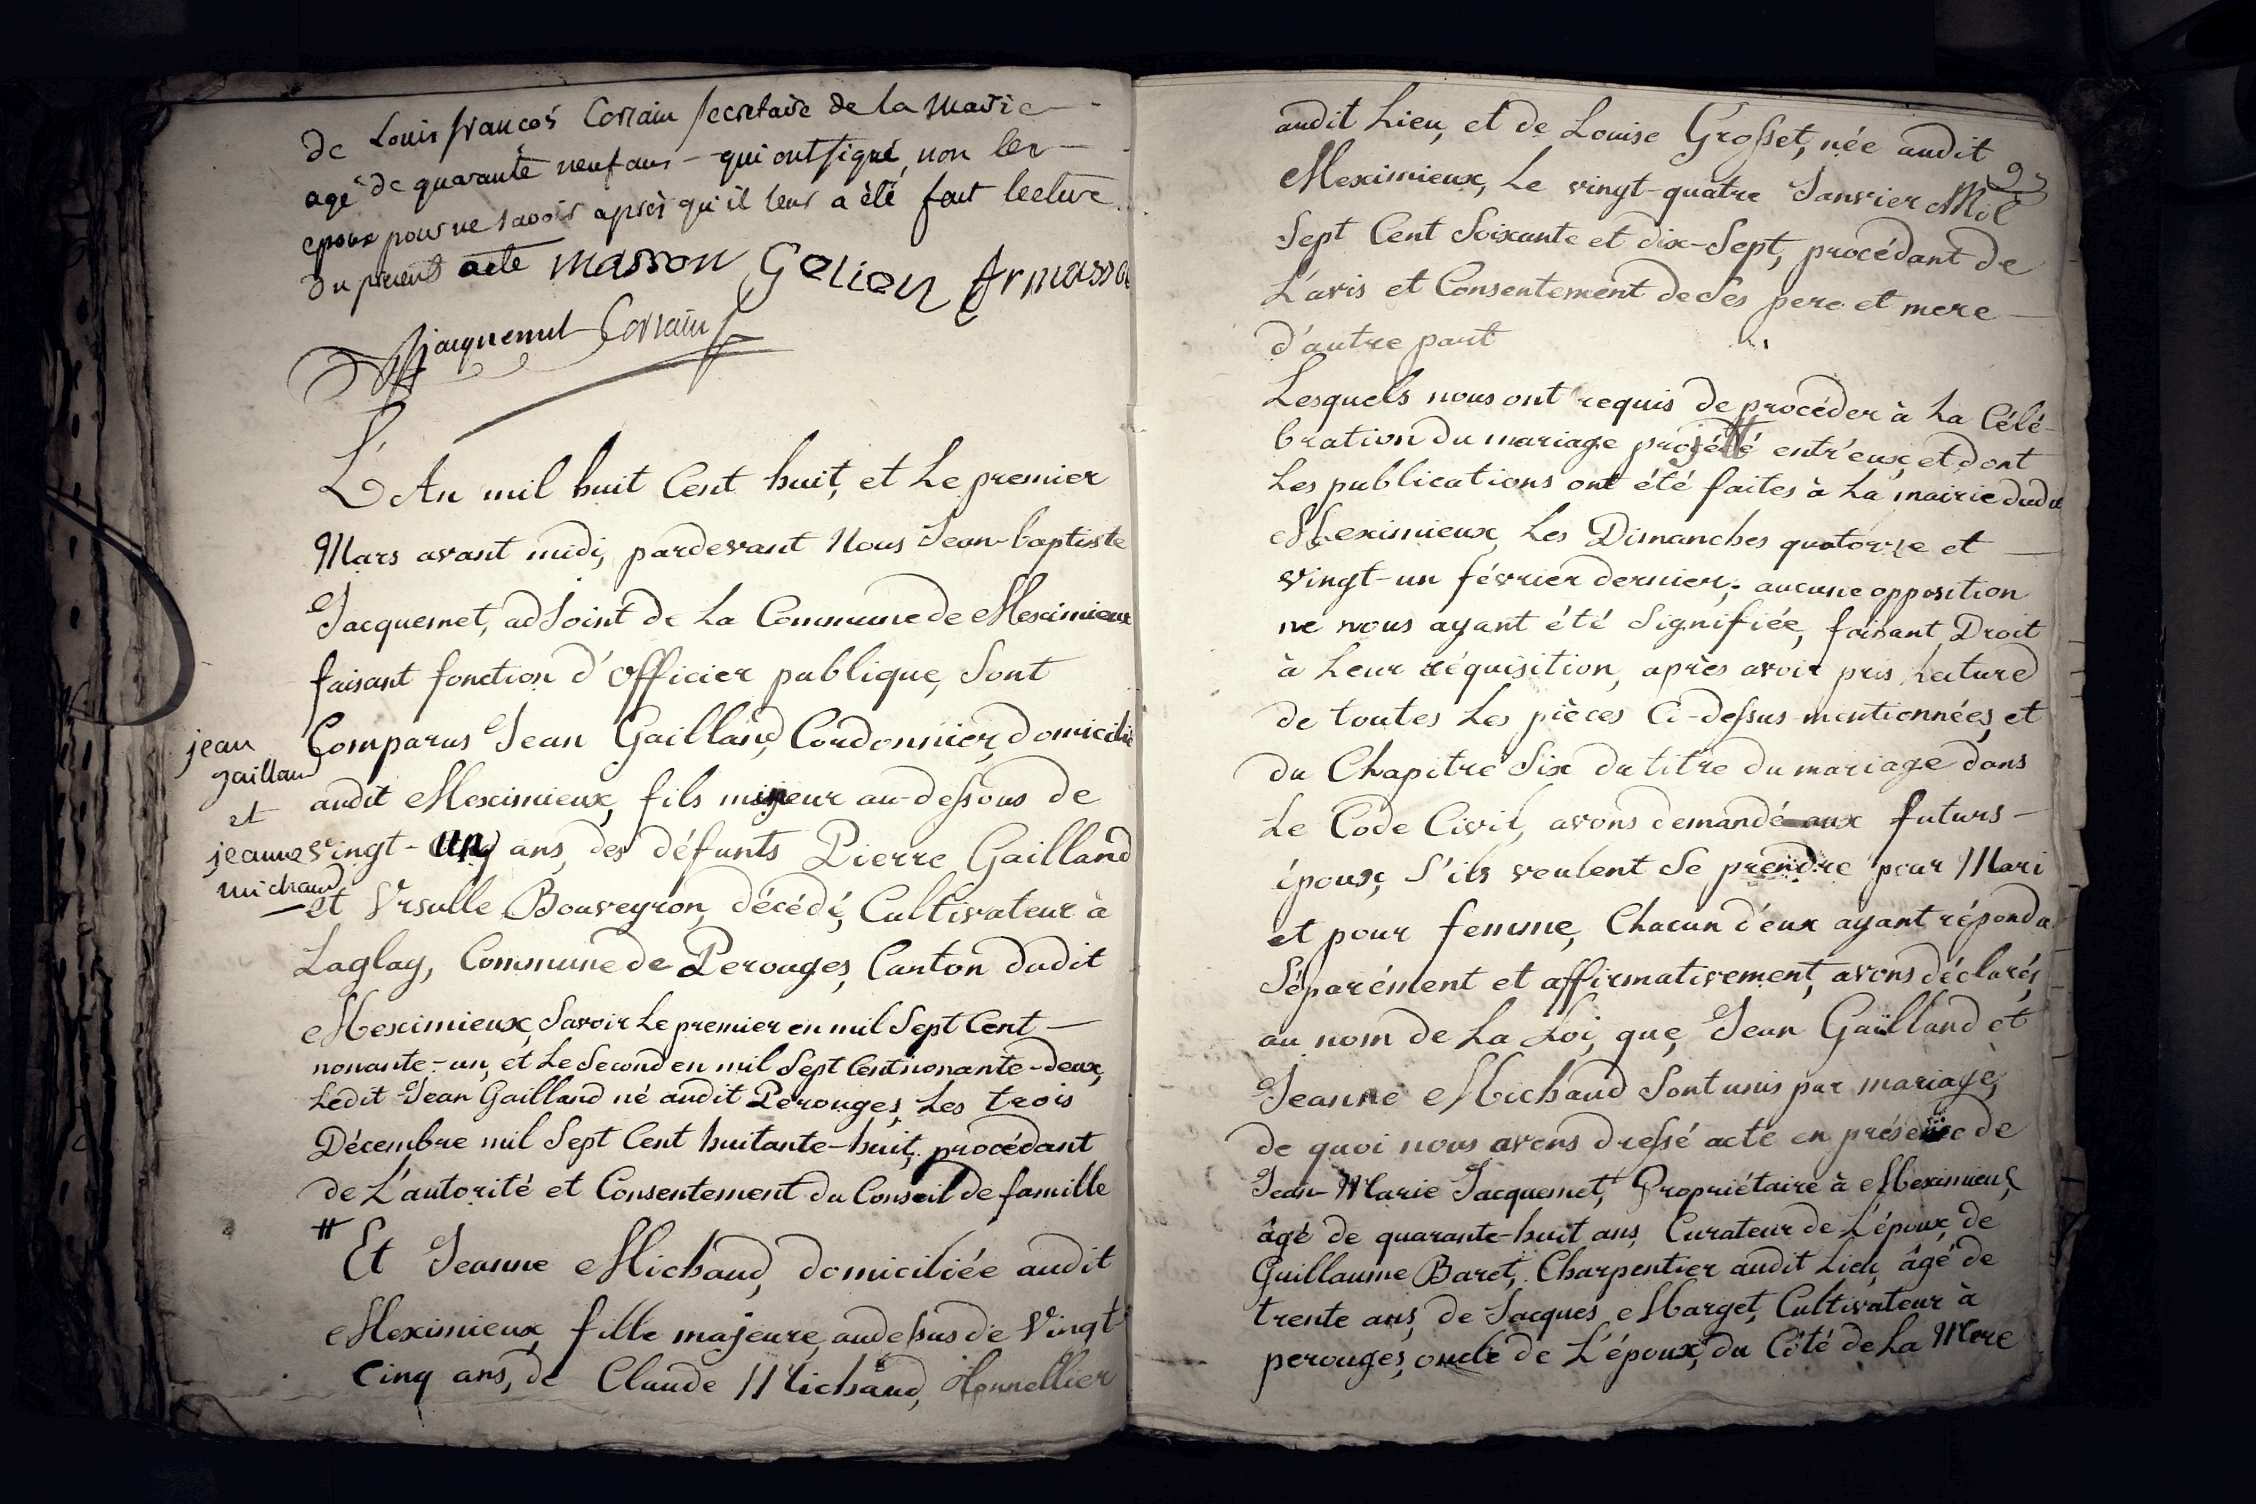 de Louis françois Corsain secretaire de la mairie
agé de quarante neuf ans - qui ont signé, non les
epoux pour ne savoir après qu'il leur a été fait lecture
du present acte masson Gelion fr masson
Jacquemet Corsain
L'An mil huit Cent huit, et Le premier
Mars avant midi, pardevant Nous Jean-baptiste
Jacquemet, adjoint de La Commune de Meximieux
faisant fonction d'officier publique, Sont
Comparus Jean Gailland, Cordonnier, domicilié
audit Meximieux, fils mineur au-dessous de
vingt-cinq ans, des défunts Pierre Gailland
et Ursulle Bouveyron, décédé, Cultivateur à
Laglay, Commune de Perouges, Canton dudit
Meximieux, Savoir Le premier en mil Sept Cent
nonante-un, et Le Second en mil Sept Cent nonante-deux,
Ledit Jean Gailland né audit Perouges, Les trois
Décembre mil Sept Cent huitante-huit, procédant
de L'autorité et Consentement du Conseil de famille
jean
gailland
et
jeanne
michaud
Et Jeanne Michaud, domiciliée audit
Meximieux, fille majeure, audessus de Vingt
Cinq ans, de Claude Michaud,
audit Lieu, et de Louise Grosset, née audit
Meximieux, Le vingt-quatre Janvier Mil
Sept Cent Soixante et dix-Sept, procédant de
L'avis et Consentement de Ses pere et mere
d'autre part
Lesquels nous ont requis de procéder à La Célé-
bration du mariage projetté entr'eux, et dont
Les publications ont été faites à La mairie dudit
Meximieux, Les Dimanches quatorze et
vingt-un février dernier; aucune opposition
ne nous ayant été Signifiée, faisant Droit
à Leur réquisition, après avoir pris Lecture
de toutes Les pièces Ci-dessus mentionnées, et
du Chapitre Six du titre du mariage dans
Le Code Civil, avons demandé aux futurs
époux, S'ils veulent Se prendre pour Mari
et pour femme, Chacun d'eux ayant répondu
Séparément et affirmativement, avons déclarés,
au nom de La Loi, que, Jean Gailland et
Jeanne Michaud Sont unis par mariage,
de quoi nous avons dressé acte en présence de
Jean-Marie Jacquemet, Propriétaire à Meximieux,
âgé de quarante-huit ans, Curateur de L'époux, de
Guillaume Baret, Charpentier audit Lieu, âgé de
trente ans, de Jacques Marget, Cultivateur à
perouges, oncle de L'époux, du Côté de La Mere